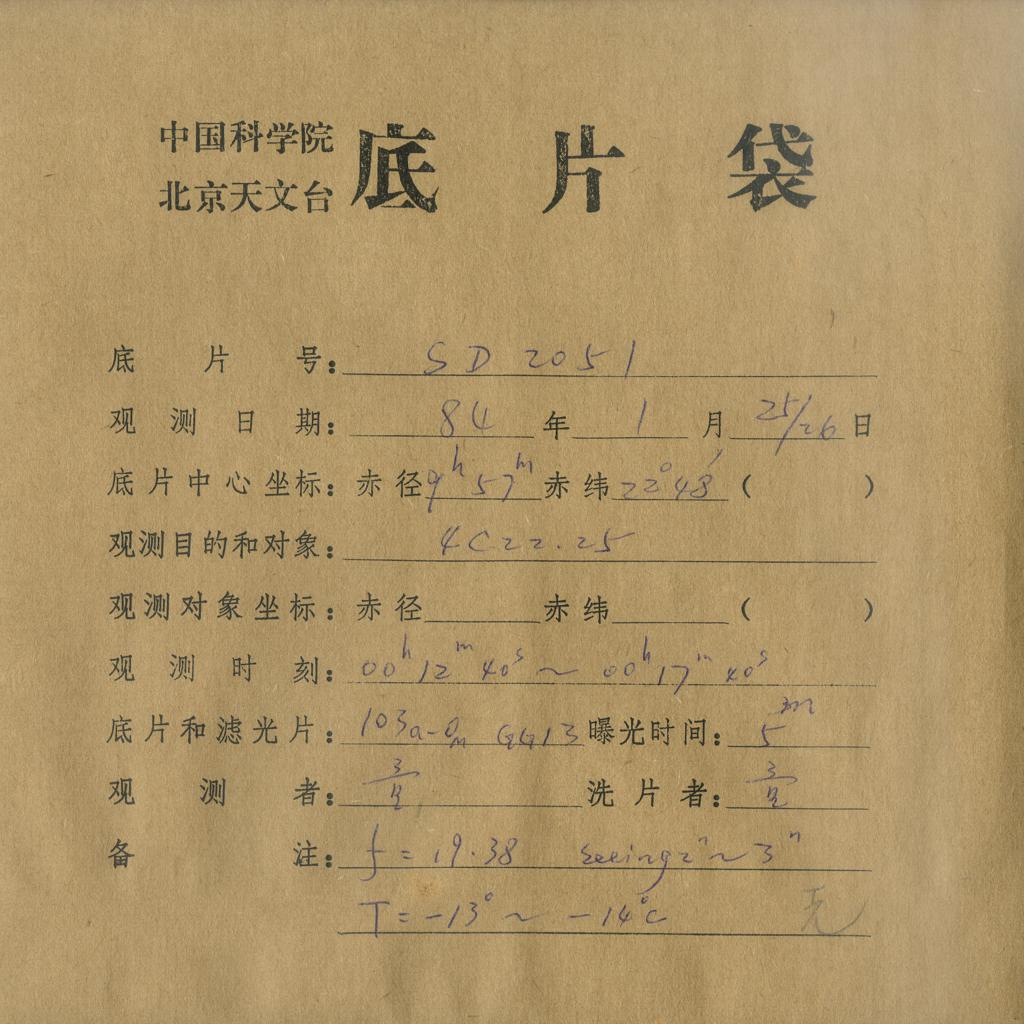 中国科学院
北京天文台
底片袋
底片号: SD 2051
观测日期: 84年1月25/26日
底片中心坐标: 赤径9h57m赤纬22°48′( )
观测目的和对象: 4C22.25
观测对象坐标: 赤径 赤纬 ( )
观测时刻: 00h12m40s ~ 00h17m40s
底片和滤光片: 103a-O GG13 曝光时间: 5m
观测者: 洗片者:
备注: f = 19.38 seeing 2" ~ 3"
T = -13° ~ -14°C